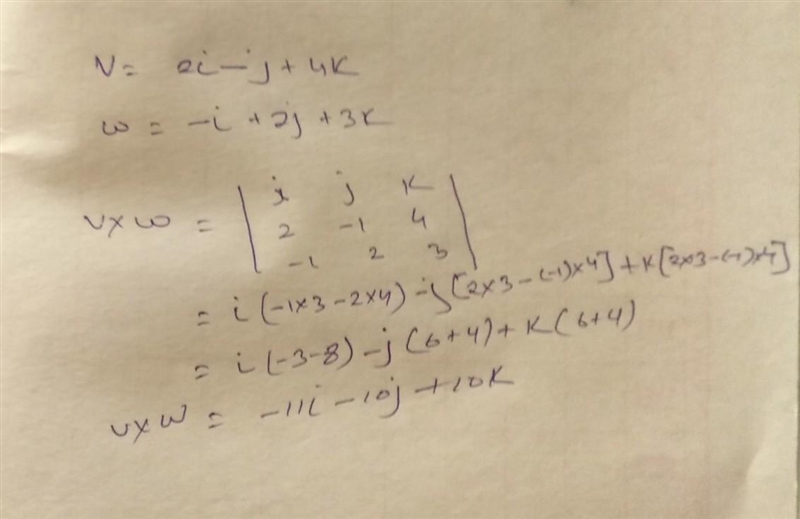 V= 2i-j+4K
w = -i +2j +3K
i j K
VXW = 2 -1 4
-1 2 3
= i (-1x3 -2x4) -j [2x3 -(-1)x4] + K [2x3 -(-1)x4]
= i (-3-8) -j (6+4) + K (6+4)
VXW = -11i -10j +10K